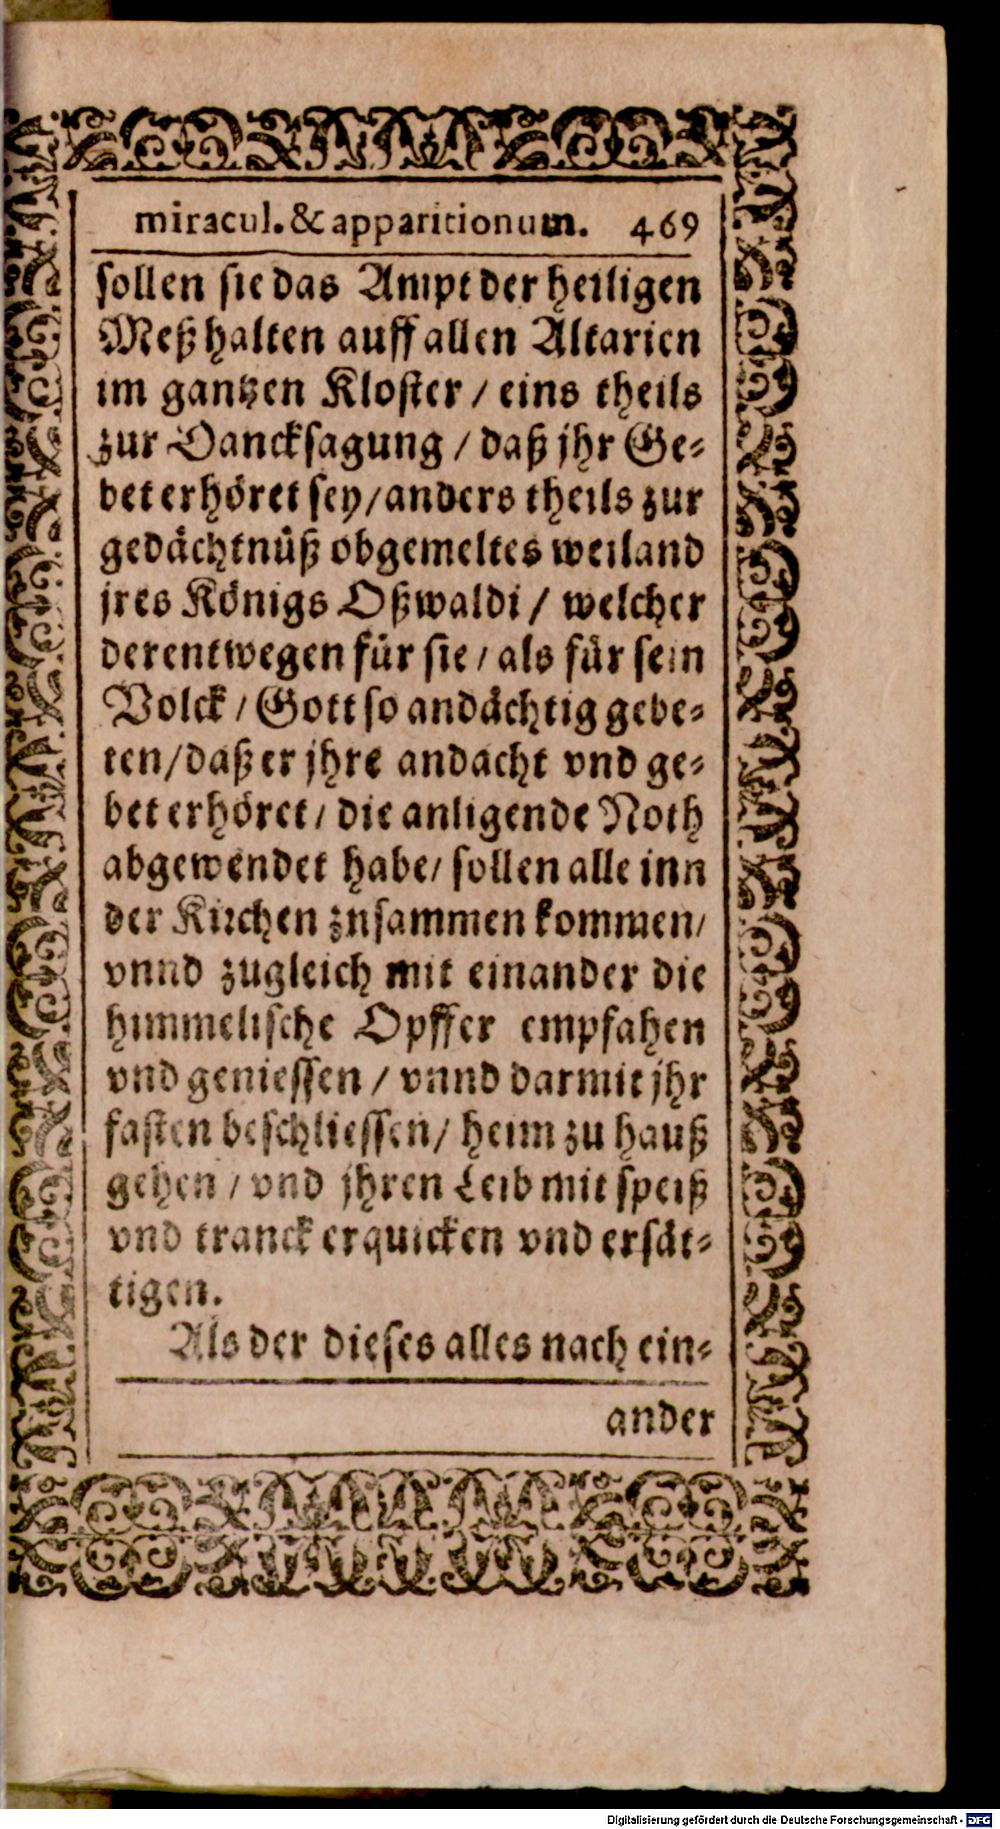 miracul. & apparitionum. 469
sollen sie das Ampt der heiligen
Meß halten auff allen Altarien
im gantzen Kloster / eins theils
zur Dancksagung / daß jhr Ge-
bet erhöret sey / anders theils zur
gedächtnüß obgemeltes weiland
jres Königs Oßwaldi / welcher
derentwegen für sie / als für sein
Volck / Gott so andächtig gebe-
ten / daß er jhre andacht vnd ge-
bet erhöret / die anligende Noth
abgewendet habe / sollen alle inn
der Kirchen znsammen kommen /
vnnd zugleich mit einander die
himmelische Opffer empfahen
vnd geniessen / vnnd darmit jhr
fasten beschliessen / heim zu hauß
gehen / vnd jhren Leib mit speiß
vnd tranck erquicken vnd ersät-
tigen.
Als der dieses alles nach ein-
ander
Digitalisierung gefördert durch die Deutsche Forschungsgemeinschaft - DFG